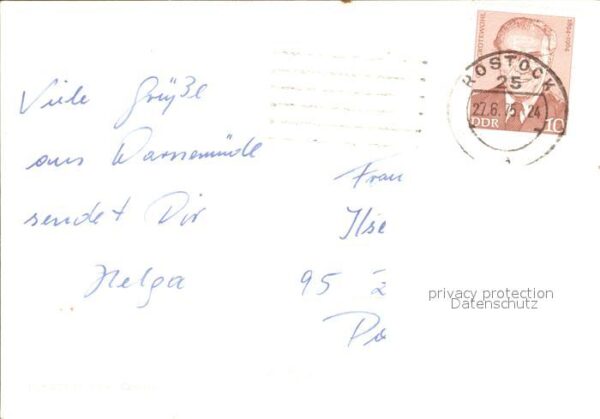 Viele Grüße
aus Warnemünde
sendet Dir
Helga
GROTEWOHL
1894-1964
DDR
10
ROSTOCK
25
27.6.75-24
Frau
Ilse
95 Z
Po
privacy protection
Datenschutz